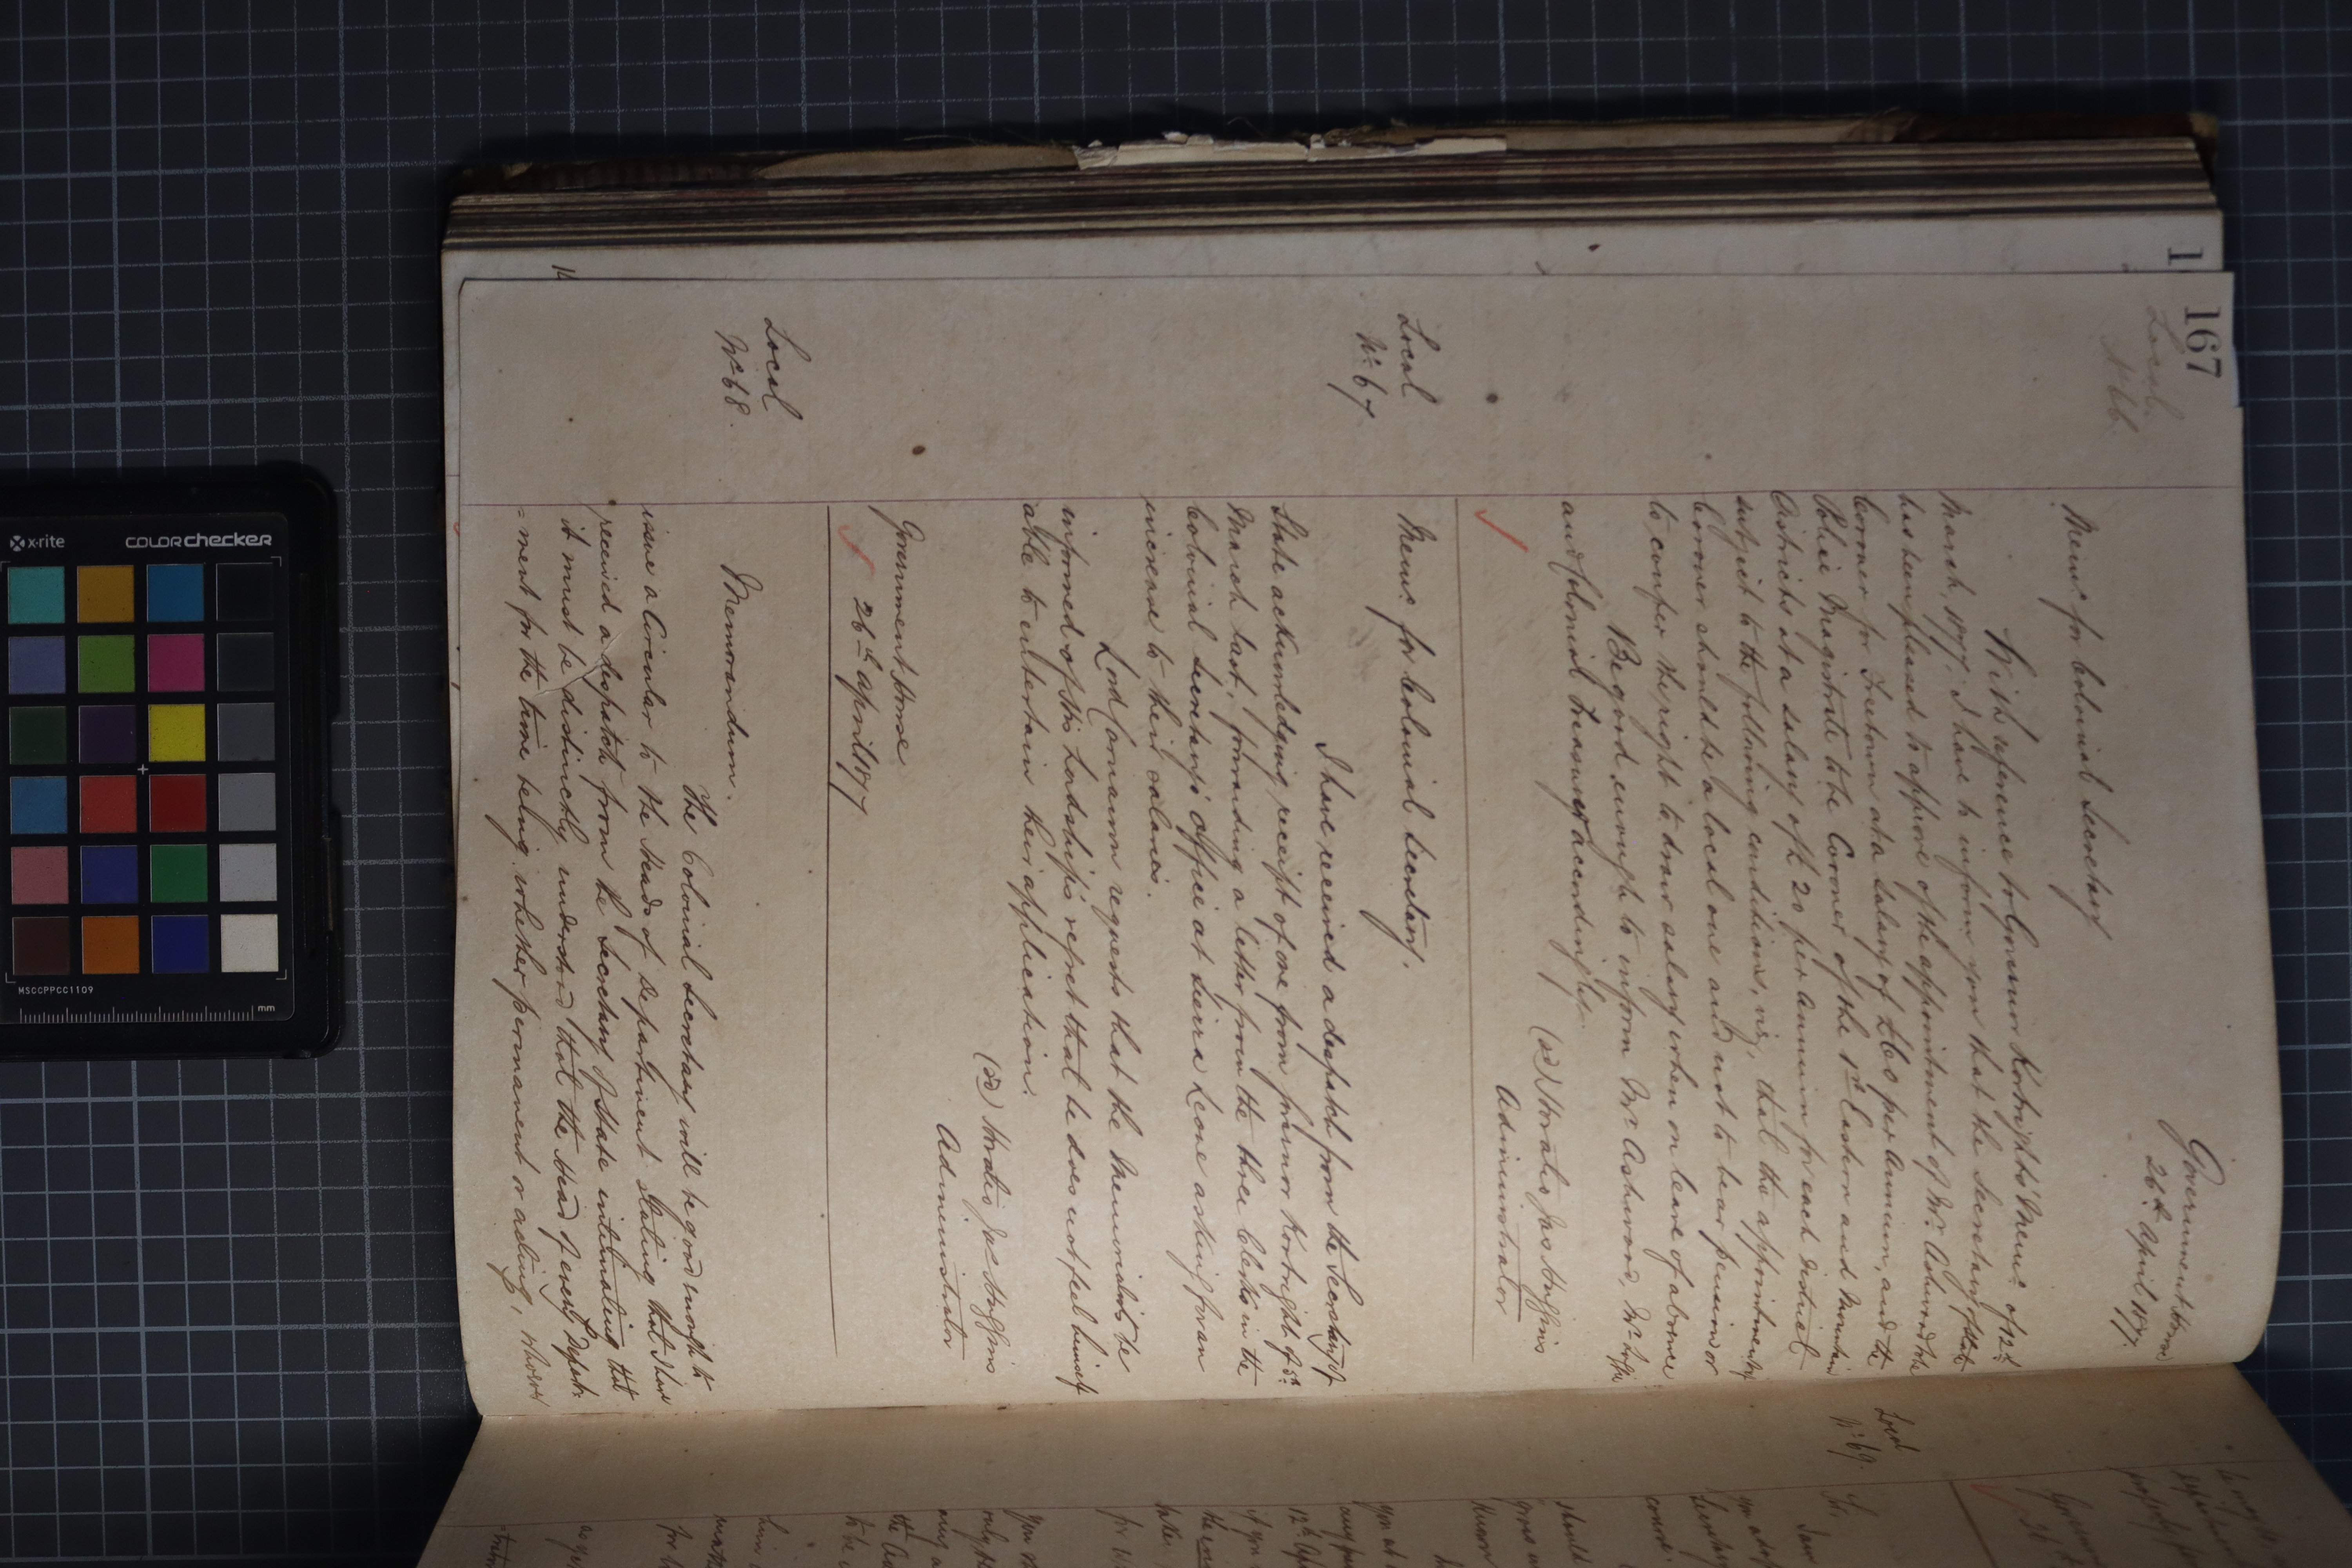 167
Local
No. 66
Government House
26th April 1877.
Memo. for Colonial Secretary
With reference to Governor Kortright's Memo. of 12th
March, 1877, I have to inform you that the Secretary of State
has been pleased to approve of the appointment of Mr. Ashwood to be
Coroner for Freetown at a salary of £60 per annum, and the
Police Magistrate to be Coroner of the 1st Eastern and Mountain
Districts at a salary of £20 per annum for each district
subject to the following conditions, viz, that the appointment of
Coroner should be a local one and not to bear pension or
to confer the right to draw salary when on leave of absence.
Be good enough to inform Mr. Ashwood, Mr.
and Colonial Treasurer accordingly.
(sd) Horatio Jas Huggins
Administrator
Local
No. 67
Memo. for Colonial Secretary.
I have received a despatch from the Secretary of
State acknowledging receipt of one from Governor Kortright of 5th
March last, forwarding a letter from the three Clerks in the
Colonial Secretary's office at Sierra Leone asking for an
increase to their salaries.
Lord Carnarvon requests that the Memorialists be
informed of His Lordship's regret that he does not feel himself
able to entertain their application.
(sd) Horatio Jas Huggins
Administrator
Government House
26th April 1877
Local
No. 68.
Memorandum.
The Colonial Secretary will be good enough to
issue a Circular to the Heads of Department stating that I have
received a despatch from the Secretary of State intimating that
it must be distinctly understood that the Head of every Depart-
=ment for the time being whether permanent or acting, whoever
Local
No. 69.